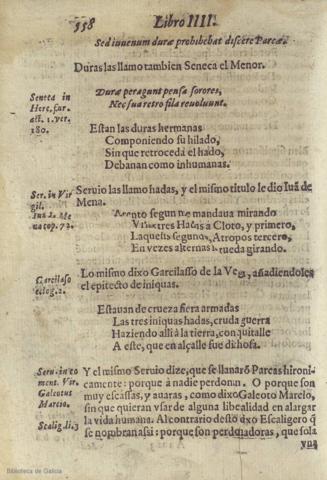 558 Libro IIII.
Sed iuuenum duræ prohibebat discere Parcæ.
Duras las llamo tambien Seneca el Menor.
Duræ peragunt pensa sorores,
Nec sua retro fila reuoluunt.
Seneca in
Herc. fur.
act. 1. ver.
180.
Estan las duras hermanas
Componiendo su hilado,
Sin que retroceda el hado,
Debanan como inhumanas.
Ser. in Vir
gil.
Iuã d. Me
na cop. 72.
Seruio las llamo hadas, y el mismo titulo le dio Iuã de
Mena.
segun me mandaua mirando
tres Hadas a Cloto, y primero,
Laquesis segundo, Atropos tercero,
En vezes alternas rueda girando.
Garcilaso
eclog. 2.
Lo mismo dixo Garcilasso de la Vega, añadiendoles
el epitecto de iniquas.
Estauan de crueza fiera armadas
Las tres iniquas hadas, cruda guerra
Haziendo alli à la tierra, con quitalle
A este, que en alçalle fue dichosa.
Seru. in co
ment. Vir.
Galeotus
Marcio.
Scalig. li. 3
Y el mismo Seruio dize, que se llamarõ Parcas hironi
camente: porque à nadie perdonan. O porque son
muy escassas, y auaras, como dixo Galeoto Marcio,
sin que quieran vsar de alguna liberalidad en alargar
la vida humana. Al contrario desto dxo Escaligero q̃
se nombran assi: porque son perdonadoras, que sola
vna
Biblioteca de Galicia